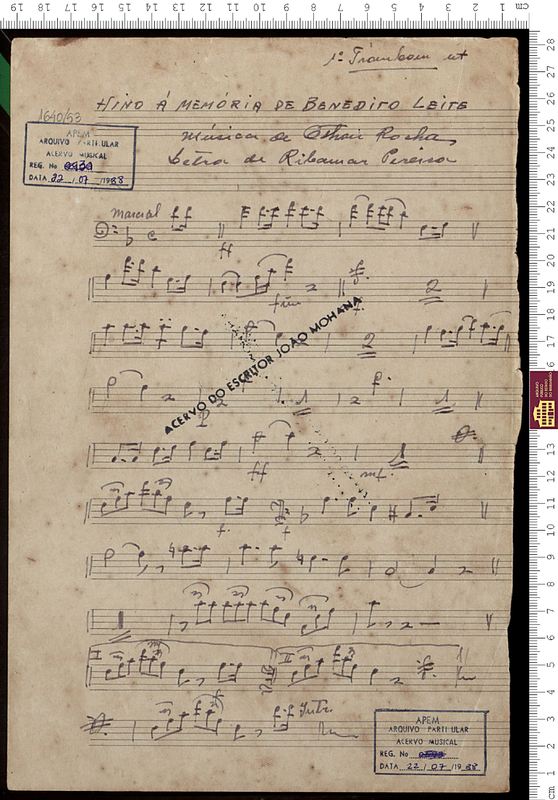 1º Trombone ut
HINO Á MEMÓRIA DE BENEDITO LEITE
1640/53
Música de Othon Rocha
Letra de Ribamar Pereira
APEM
ARQUIVO PARTICULAR
ACERVO MUSICAL
REG. No
DATA 22 / 07 / 1988
Marcial
ff
fim
2
ACERVO DO ESCRITOR JOÃO MOHANA
2
1
1
ff
mf
1
f
f
I
II
Intr.
APEM
ARQUIVO PARTICULAR
ACERVO MUSICAL
REG. No
DATA 22 / 07 / 1988